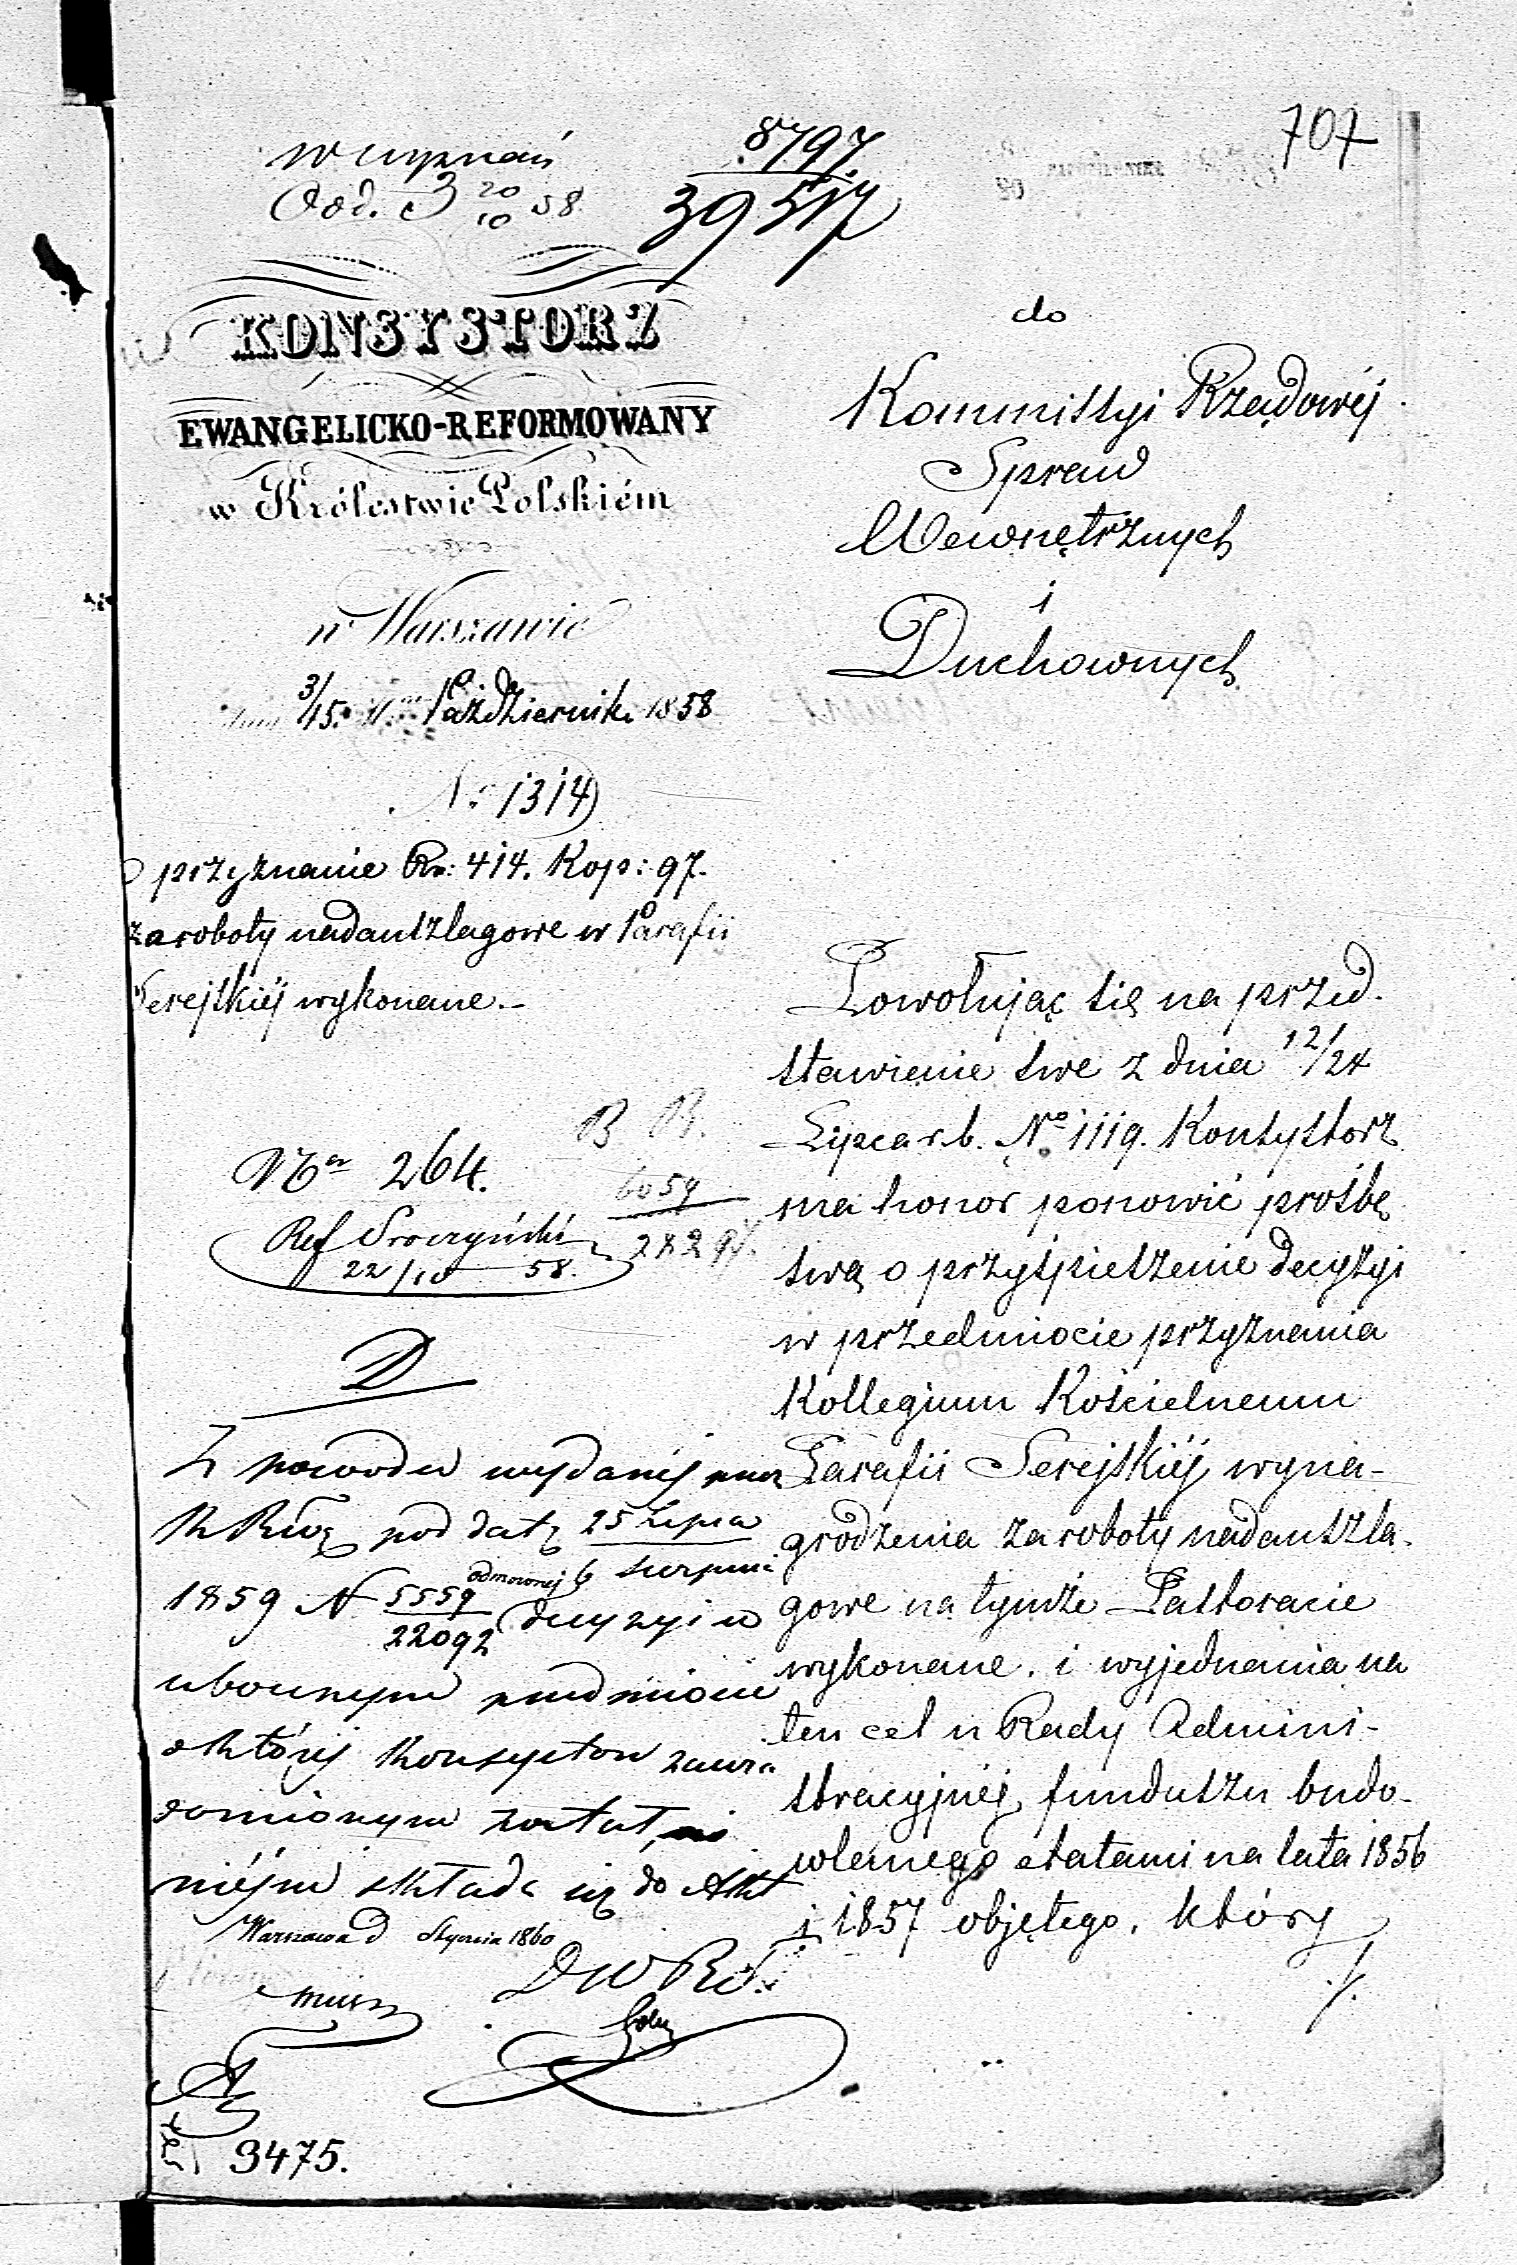 707
W wyznań
Odd. 3 20/10 58
8797.
39517
KONSYSTORZ
EWANGELICKO-REFORMOWANY
w Królestwie Polskiém
w Warszawie
dnia 3/15. Października 1858
No 1314
o przyznanie Rs: 414. Kop: 97.
za roboty nadanszlagowe w Parafii
Serejskiéj wykonane.-
264.
Ref
22/10 58.
B B.
6059
D
Z powodu wydanéj przez
KRwą pod datą 25 Lipca
6 Sierpnia
1859 N 5559/22092 odmownej decyzyi w
ubocznym przedmiocie
o któréj Konsystorz zawia
domionym został,
niéjsze składa się do Akt
Warszawa d Stycznia 1860
DWRD.
3475.
do
Kommissyi Rządowéj
Spraw
Wewnętrznych
i
Duchownych
Powołując się na przed-
stawienie swe z dnia 12/24
Lipca r. b. No 1119. Konsystorz
ma honor ponowić prośbę
swą o przyśpieszenie decyzyi
w przedmiocie przyznania
Kollegium Kościelnemu
Parafii Serejskiéj wyna-
grodzenia za roboty nadanszla-
gowe na tymże Pastoracie
wykonane, i wyjednania na
ten cel u Rady Admini-
stracyjnéj funduszu budo-
wlanego etatami na lata 1856
i 1857 objętego, który
./.